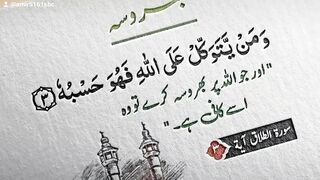 @amir5161sbc
بھروسہ
وَمَنْ يَّتَوَكَّلْ عَلَى اللّٰهِ فَهُوَ حَسْبُهٗ ﴿۳﴾
"اور جو اللہ پر بھروسہ کرے تو وہ
اسے کافی ہے۔"
سورۃ الطلاق آیۃ ۳